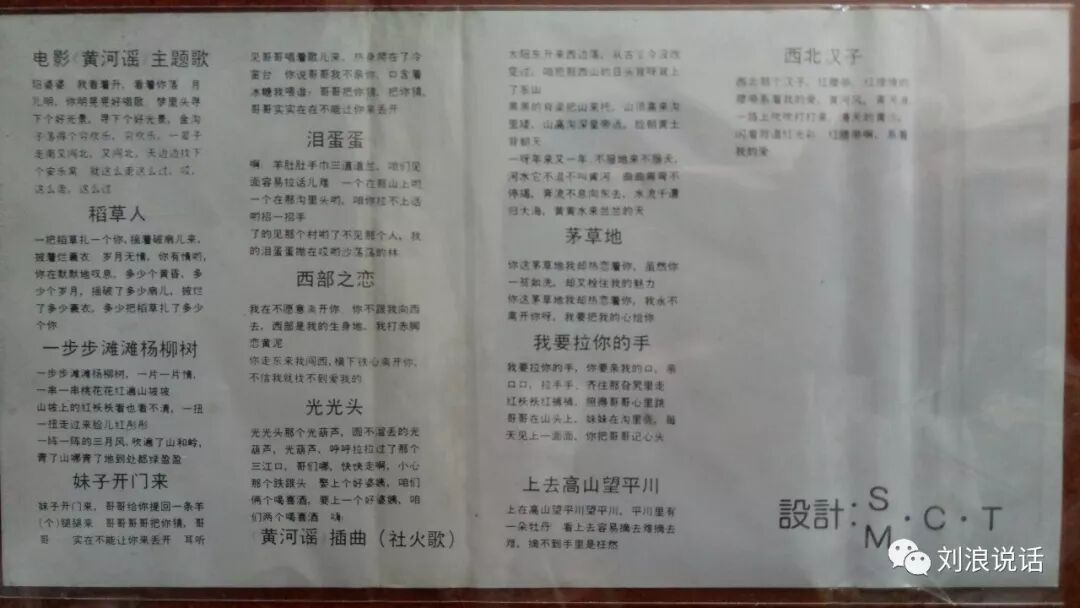 电影《黄河谣》主题歌
阳婆婆 我看着升,看着你落 月
儿明,你明晃晃好唱歌 梦里头寻
下个好光景,寻下个好光景,金沟
子荡得个穷欢乐,穷欢乐,一辈子
走南又闯北,又闯北,天边边找下
个安乐窝 就这么走这么过,哎,
这么走,这么过
稻草人
一把稻草扎一个你,摇着破扇儿来,
披着烂蓑衣 岁月无情,你有情哟,
你在默默地叹息,多少个黄昏,多
少个岁月,摇破了多少扇儿,披烂
了多少蓑衣,多少把稻草扎了多少
个你
一步步滩滩杨柳树
一步步滩滩杨柳树,一片一片情,
一串一串桃花花红遍山坡坡
山坡上的红袄袄看也看不清,一扭
一扭走过来脸儿红彤彤
一阵一阵的三月风,吹遍了山和岭,
青了山哪青了地到处都绿盈盈
妹子开门来
妹子开门来,哥哥给你提回一条羊
(个)腿腿来 哥哥哥哥把你猜,哥
哥 实在不能让你来丢开 耳听
见哥哥唱着歌儿来,热身爬在了冷
窗台 你说哥哥我不亲你,口含着
冰糖我喂谁;哥哥把你猜,把你猜,
哥哥实实在在不能让你来丢开
泪蛋蛋
啊,羊肚肚手巾三道道兰,咱们见
面容易拉话儿难 一个在那山上哟
一个在那沟里头哟,咱你拉不上话
哟招一招手
了的见那个村哟了不见那个人,我
的泪蛋蛋抛在哎哟沙蒿蒿的林
西部之恋
我在不愿意离开你 你不跟我向西
去,西部是我的生身地 我打赤脚
恋黄泥
你走东来我闯西,横下铁心离开你,
不信我就找不到爱我的
光光头
光光头那个光葫芦,圆不溜丢的光
葫芦,光葫芦,呼呼拉拉过了那个
三江口,哥们哪,快快走啊,小心
那个跌跟头 娶上个好婆姨,咱们
俩个喝喜酒,要上一个好婆姨,咱
们两个喝喜酒 嗨
《黄河谣》插曲(社火歌)
太阳东升来西边落,从古了今没改
变过,咱把那西山的日头背呀背上
了东山
黑黑的脊梁把山来托,山顶高来沟
里矮,山高沟深皇帝远,脸朝黄土
背朝天
一呀年来又一年,不服地来不服天,
河水它不退不叫黄河 曲曲弯弯不
停搁,奔流不息向东去,水流千遭
归大海,黄黄水来兰兰的天
茅草地
你这茅草地我却热恋着你,虽然你
一贫如洗,却又栓住我的魅力
你这茅草地我却热恋着你,我永不
离开你呀,我要把我的心给你
我要拉你的手
我要拉你的手,你要亲我的口,亲
口口,拉手手,齐往那旮旯里走
红袄袄红裤裤,照得哥哥心里跳
哥哥在山头上,妹妹在沟里走,每
天见上一面面,你把哥哥记心头
上去高山望平川
上在高山望平川望平川,平川里有
一朵牡丹 看上去容易摘去难摘去
难,摘不到手里是枉然
西北汉子
西北那个汉子,红腰带,红腰带的
腰带系着我的爱,黄河风,黄河浪
一路上吹吹打打来,漫天的黄沙,
闪着阳道红光彩 红腰带啊,系着
我的爱
設計:SM·C·T
刘浪说话